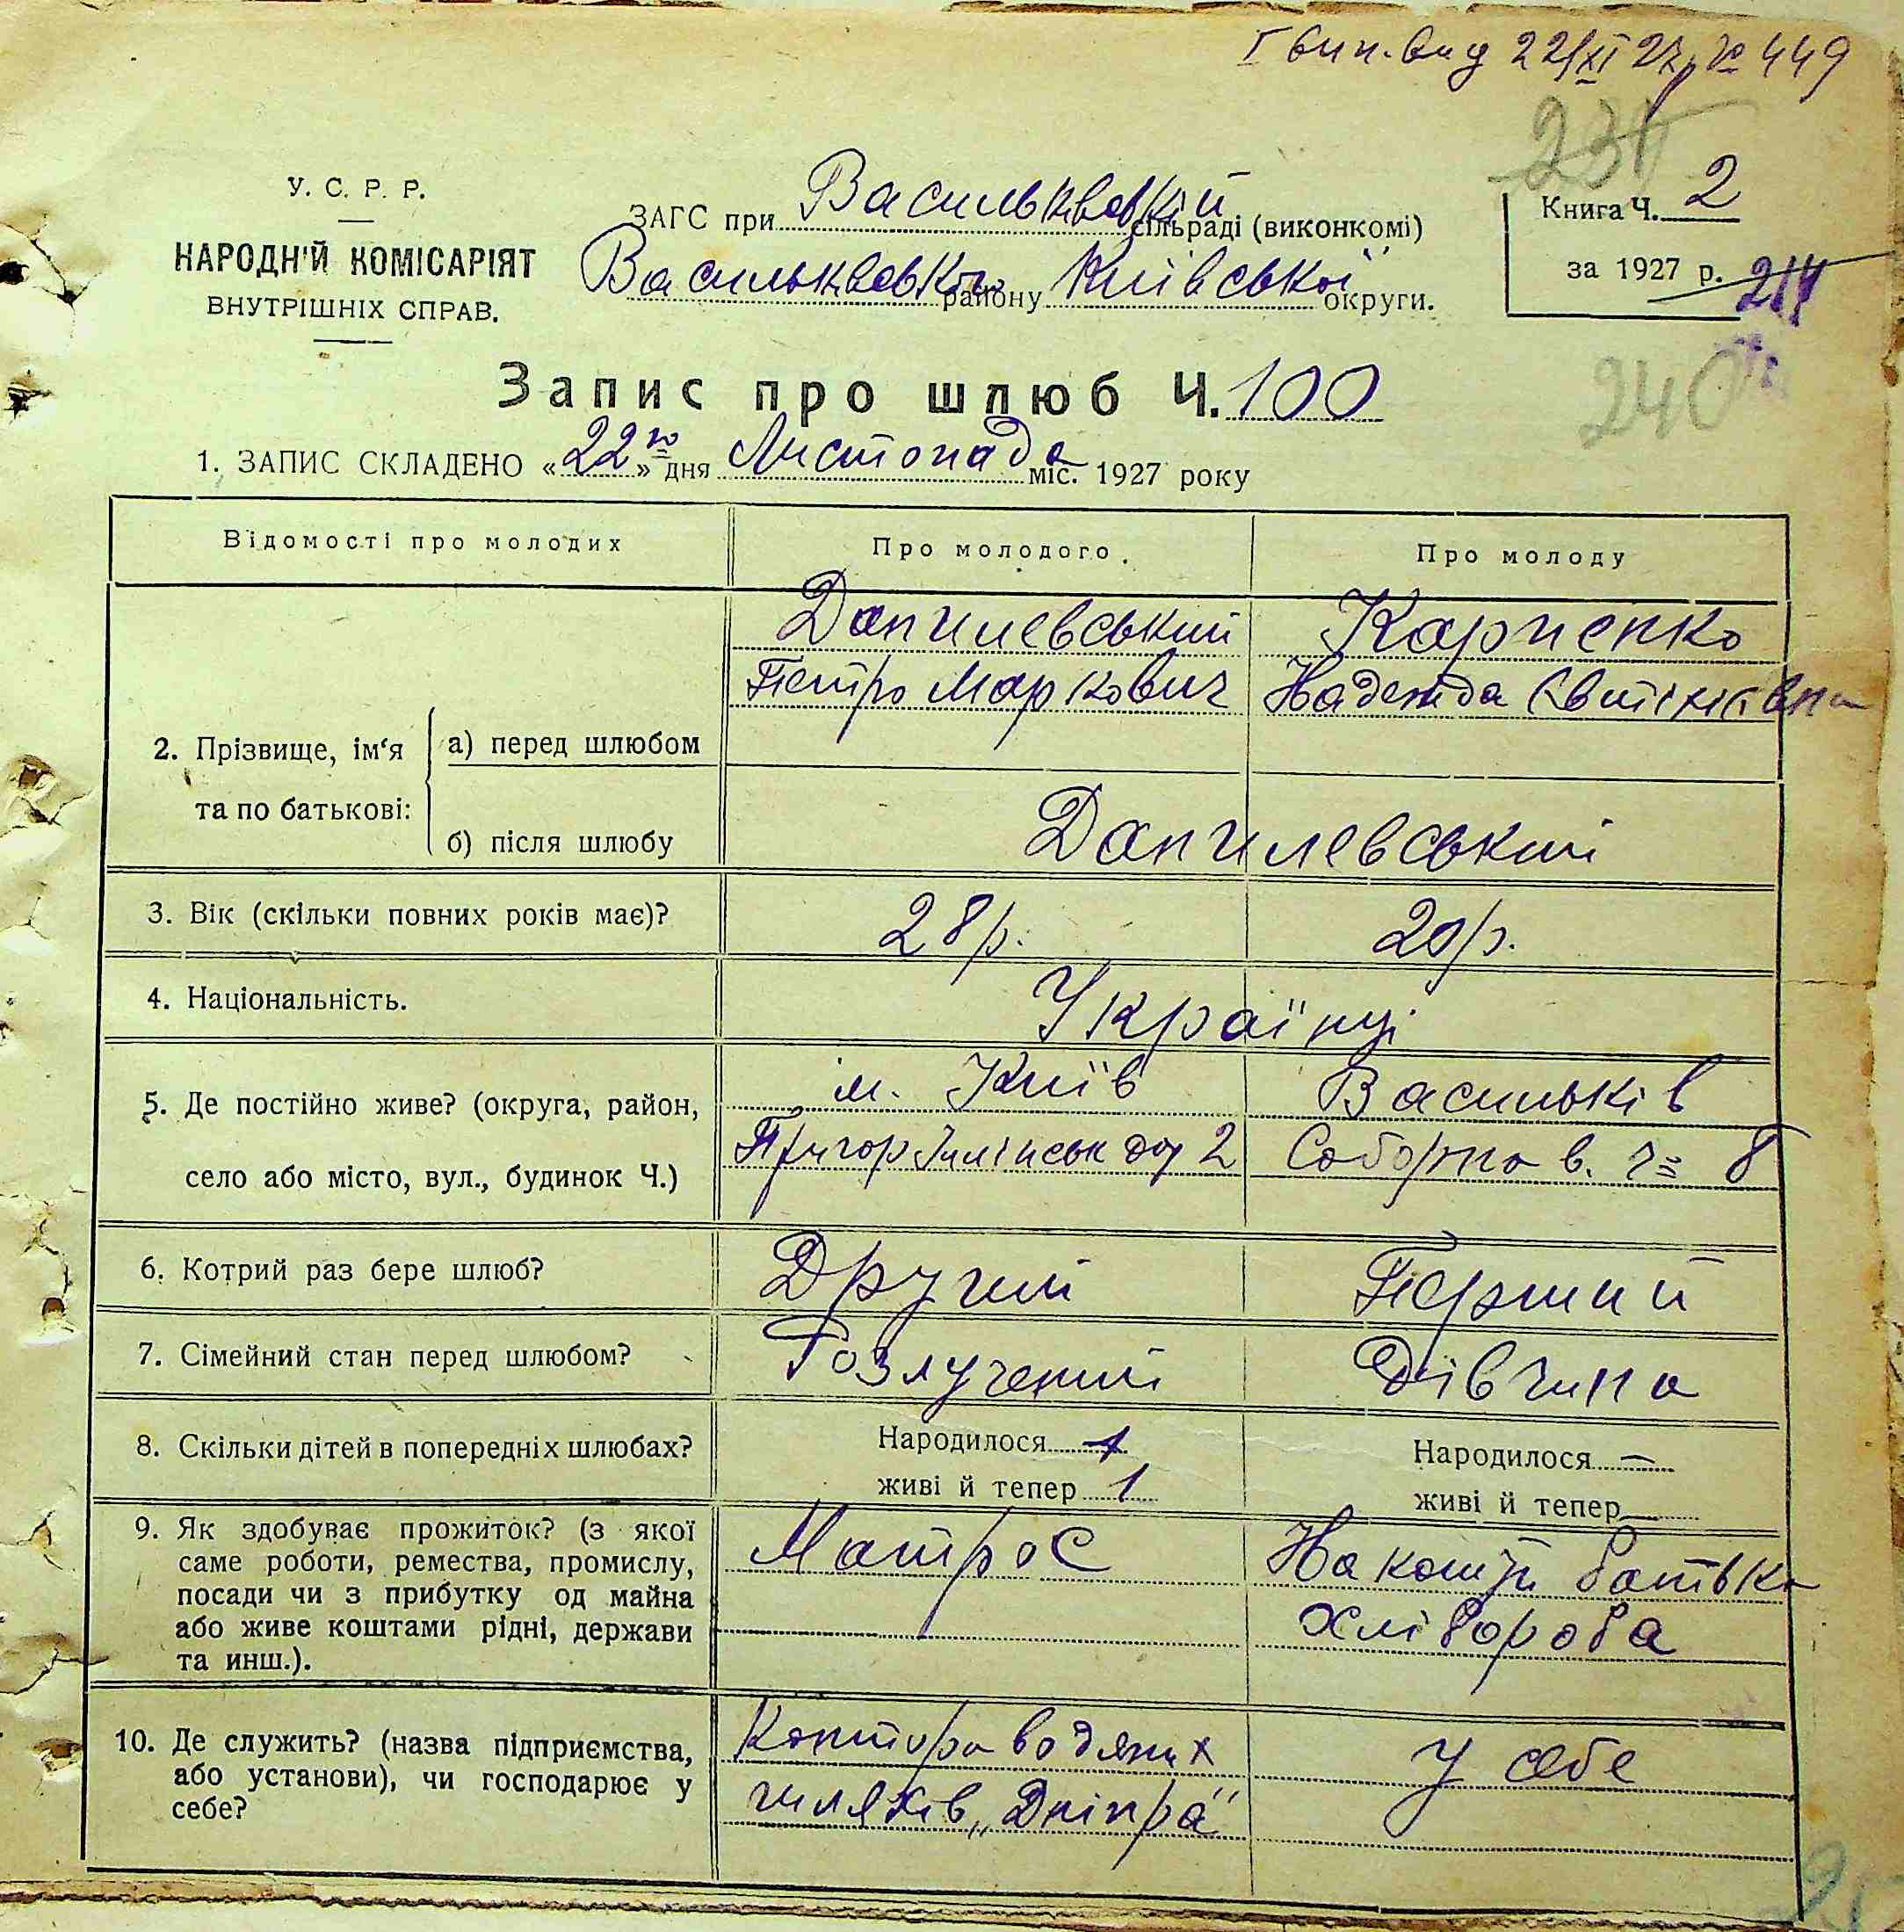 І вип. вид 22/XI 27 р № 449
231
У. С. Р. Р.
НАРОДНІЙ КОМІСАРІЯТ
ВНУТРІШНІХ СПРАВ.
ЗАГС при Васильківській сільраді (виконкомі)
району Київської округи.
Книга Ч. 2
за 1927 р.
214
240
Запис про шлюб Ч. 100
1. ЗАПИС СКЛАДЕНО «22го» дня Листопада міс. 1927 року
Відомості про молодих Про молодого. Про молоду
2. Прізвище, ім‘я та по батькові:
а) перед шлюбом
Данилевський Карпенко
Петро Маркович Надежда
б) після шлюбу
Данилевський
3. Вік (скільки повних років має)? 28 р. 20 р.
4. Національність. Українці
5. Де постійно живе? (округа, район,
село або місто, вул., будинок Ч.)
м. Київ Васильків
2 Соборна в. 8
6. Котрий раз бере шлюб? Другий Перший
7. Сімейний стан перед шлюбом? Розлучений Дівчина
8. Скільки дітей в попередніх шлюбах? Народилося 1 Народилося —
живі й тепер 1 живі й тепер —
9. Як здобуває прожиток? (з якої
саме роботи, ремества, промислу,
посади чи з прибутку од майна
або живе коштами рідні, держави
та инш.).
Матрос На кошти батька
хлібороба
10. Де служить? (назва підприємства,
або установи), чи господарює у
себе?
Контора водяних У себе
шляхів „Дніпра“